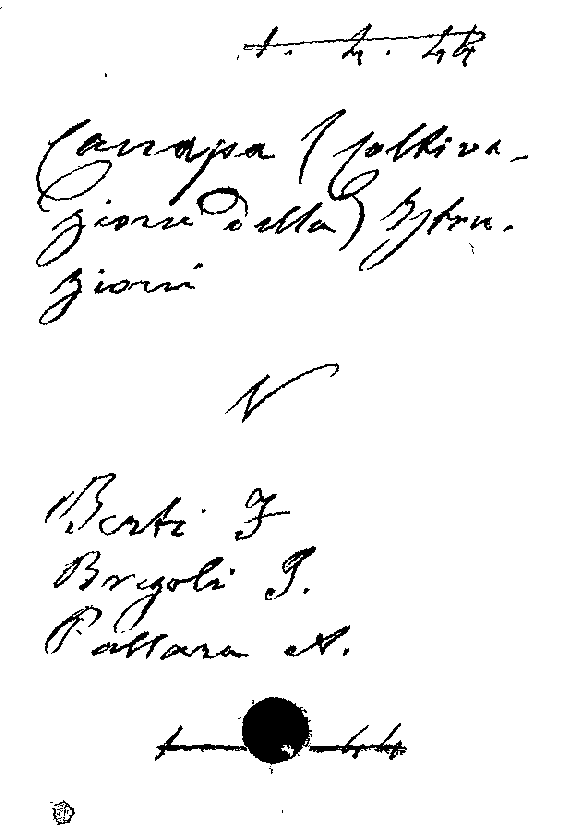 1. 4. 44
Canapa (Coltiva-
zione della) Istru-
zioni
V
Berti F
Bregoli G.
Pallara A.